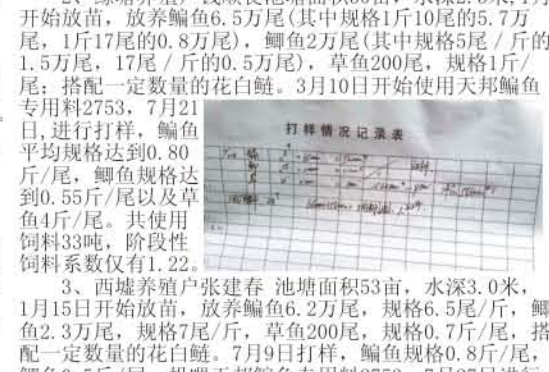 开始放苗，放养鳊鱼6.5万尾(其中规格1斤10尾的5.7万
尾，1斤17尾的0.8万尾)，鲫鱼2万尾(其中规格5尾／斤的
1.5万尾，17尾／斤的0.5万尾)，草鱼200尾，规格1斤/
尾；搭配一定数量的花白鲢。3月10日开始使用天邦鳊鱼
专用料2753，7月21
日,进行打样，鳊鱼
平均规格达到0.80
斤/尾，鲫鱼规格达
到0.55斤/尾以及草
鱼4斤/尾。共使用
饲料33吨，阶段性
饲料系数仅有1.22。
打样情况记录表
3、西墟养殖户张建春 池塘面积53亩，水深3.0米，
1月15日开始放苗，放养鳊鱼6.2万尾，规格6.5尾/斤，鲫
鱼2.3万尾，规格7尾/斤，草鱼200尾，规格0.7斤/尾，搭
配一定数量的花白鲢。7月9日打样，鳊鱼规格0.8斤/尾，